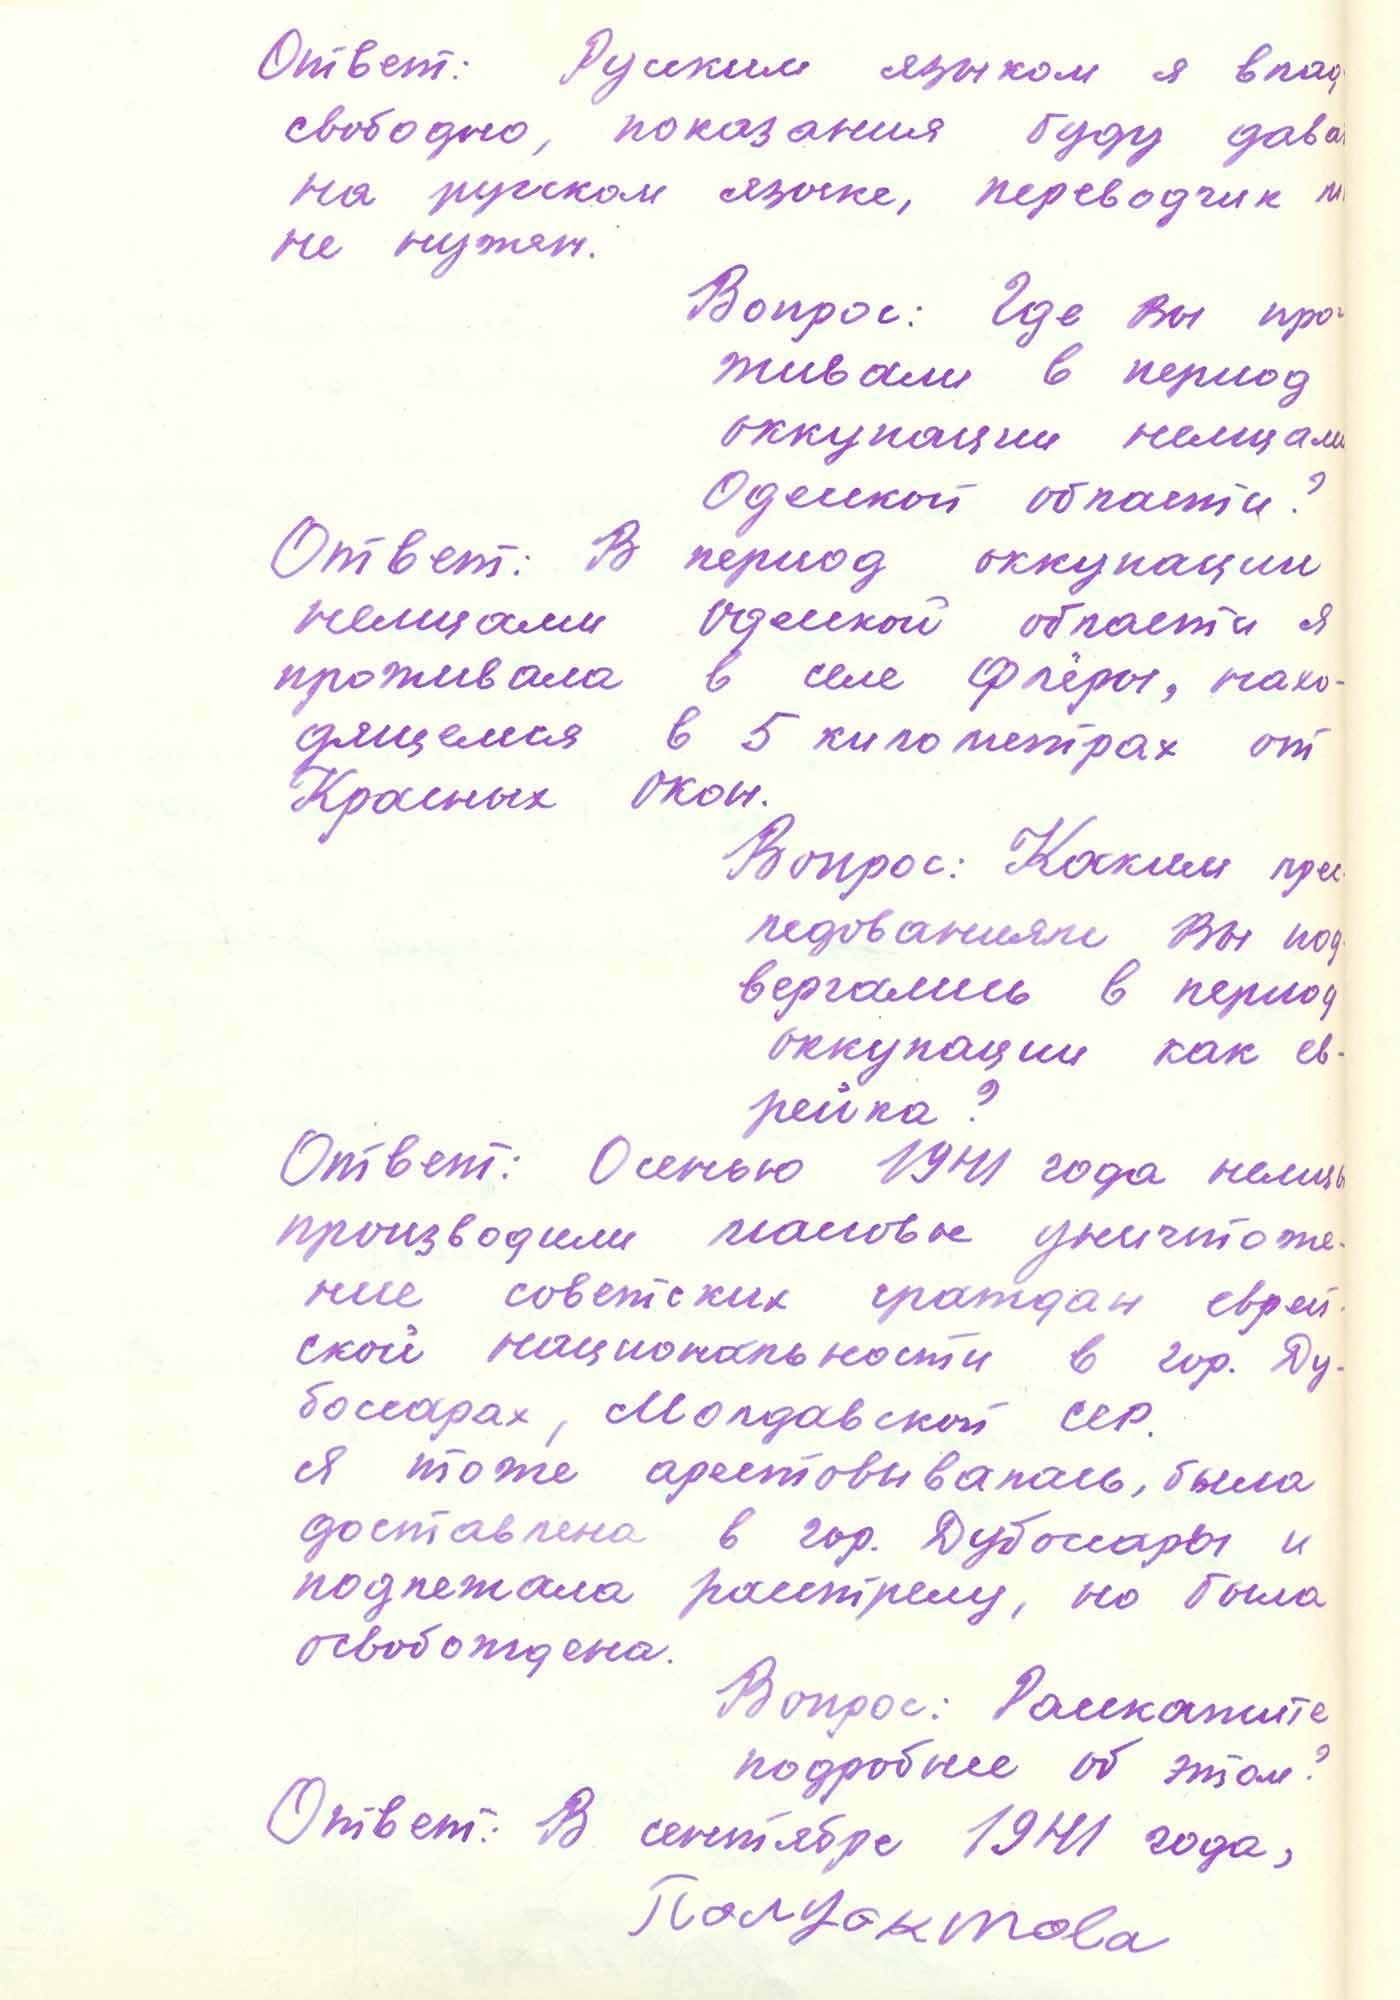 Ответ: Русским языком я влад
свободно, показания буду дава
на русском языке, переводчик м
не нужен.
Вопрос: Где Вы про-
живали в период
оккупации немцами
Одесской области?
Ответ: В период оккупации
немцами Одесской области я
проживала в селе Флёры, нахо-
дящемся в 5 километрах от
Красных Окон.
Вопрос: Каким прес-
ледованиям Вы под-
вергались в период
оккупации как ев-
рейка?
Ответ: Осенью 1941 года немцы
производили массовые уничтоже-
ние советских граждан еврей-
ской национальности в гор. Ду-
боссарах, Молдавской ССР.
Я тоже арестовывалась, была
доставлена в гор. Дубоссары и
подлежала расстрелу, но была
освобождена.
Вопрос: Расскажите
подробнее об этом?
Ответ: В сентябре 1941 года,